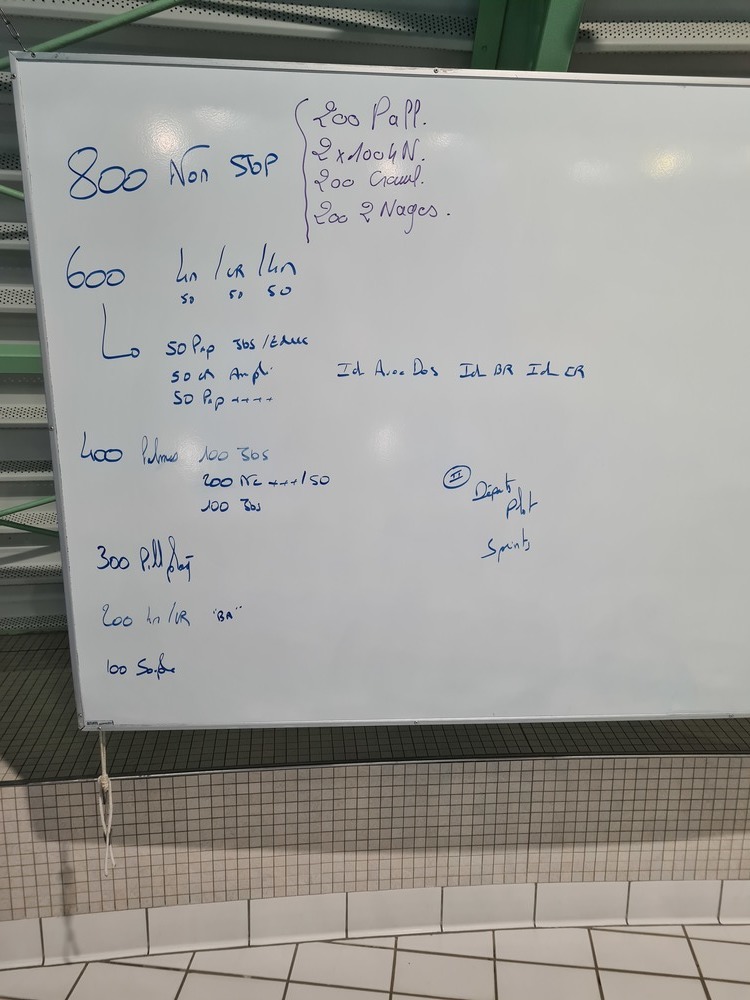 800 Non Stop
200 Pall.
2x1004N.
200 Crawl.
200 2 Nages.
600 4n / CR / 4n
50 50 50
50 Pap Jbs / Educ
50 CR Ampli
50 Pap ++++
Id Avec Dos Id BR Id CR
400 Palmes 100 Jbs
200 NC +++/50
100 Jbs
II
Départs
Plot
Sprints
300 Pull
200 4n/CR "BA"
100 Souple